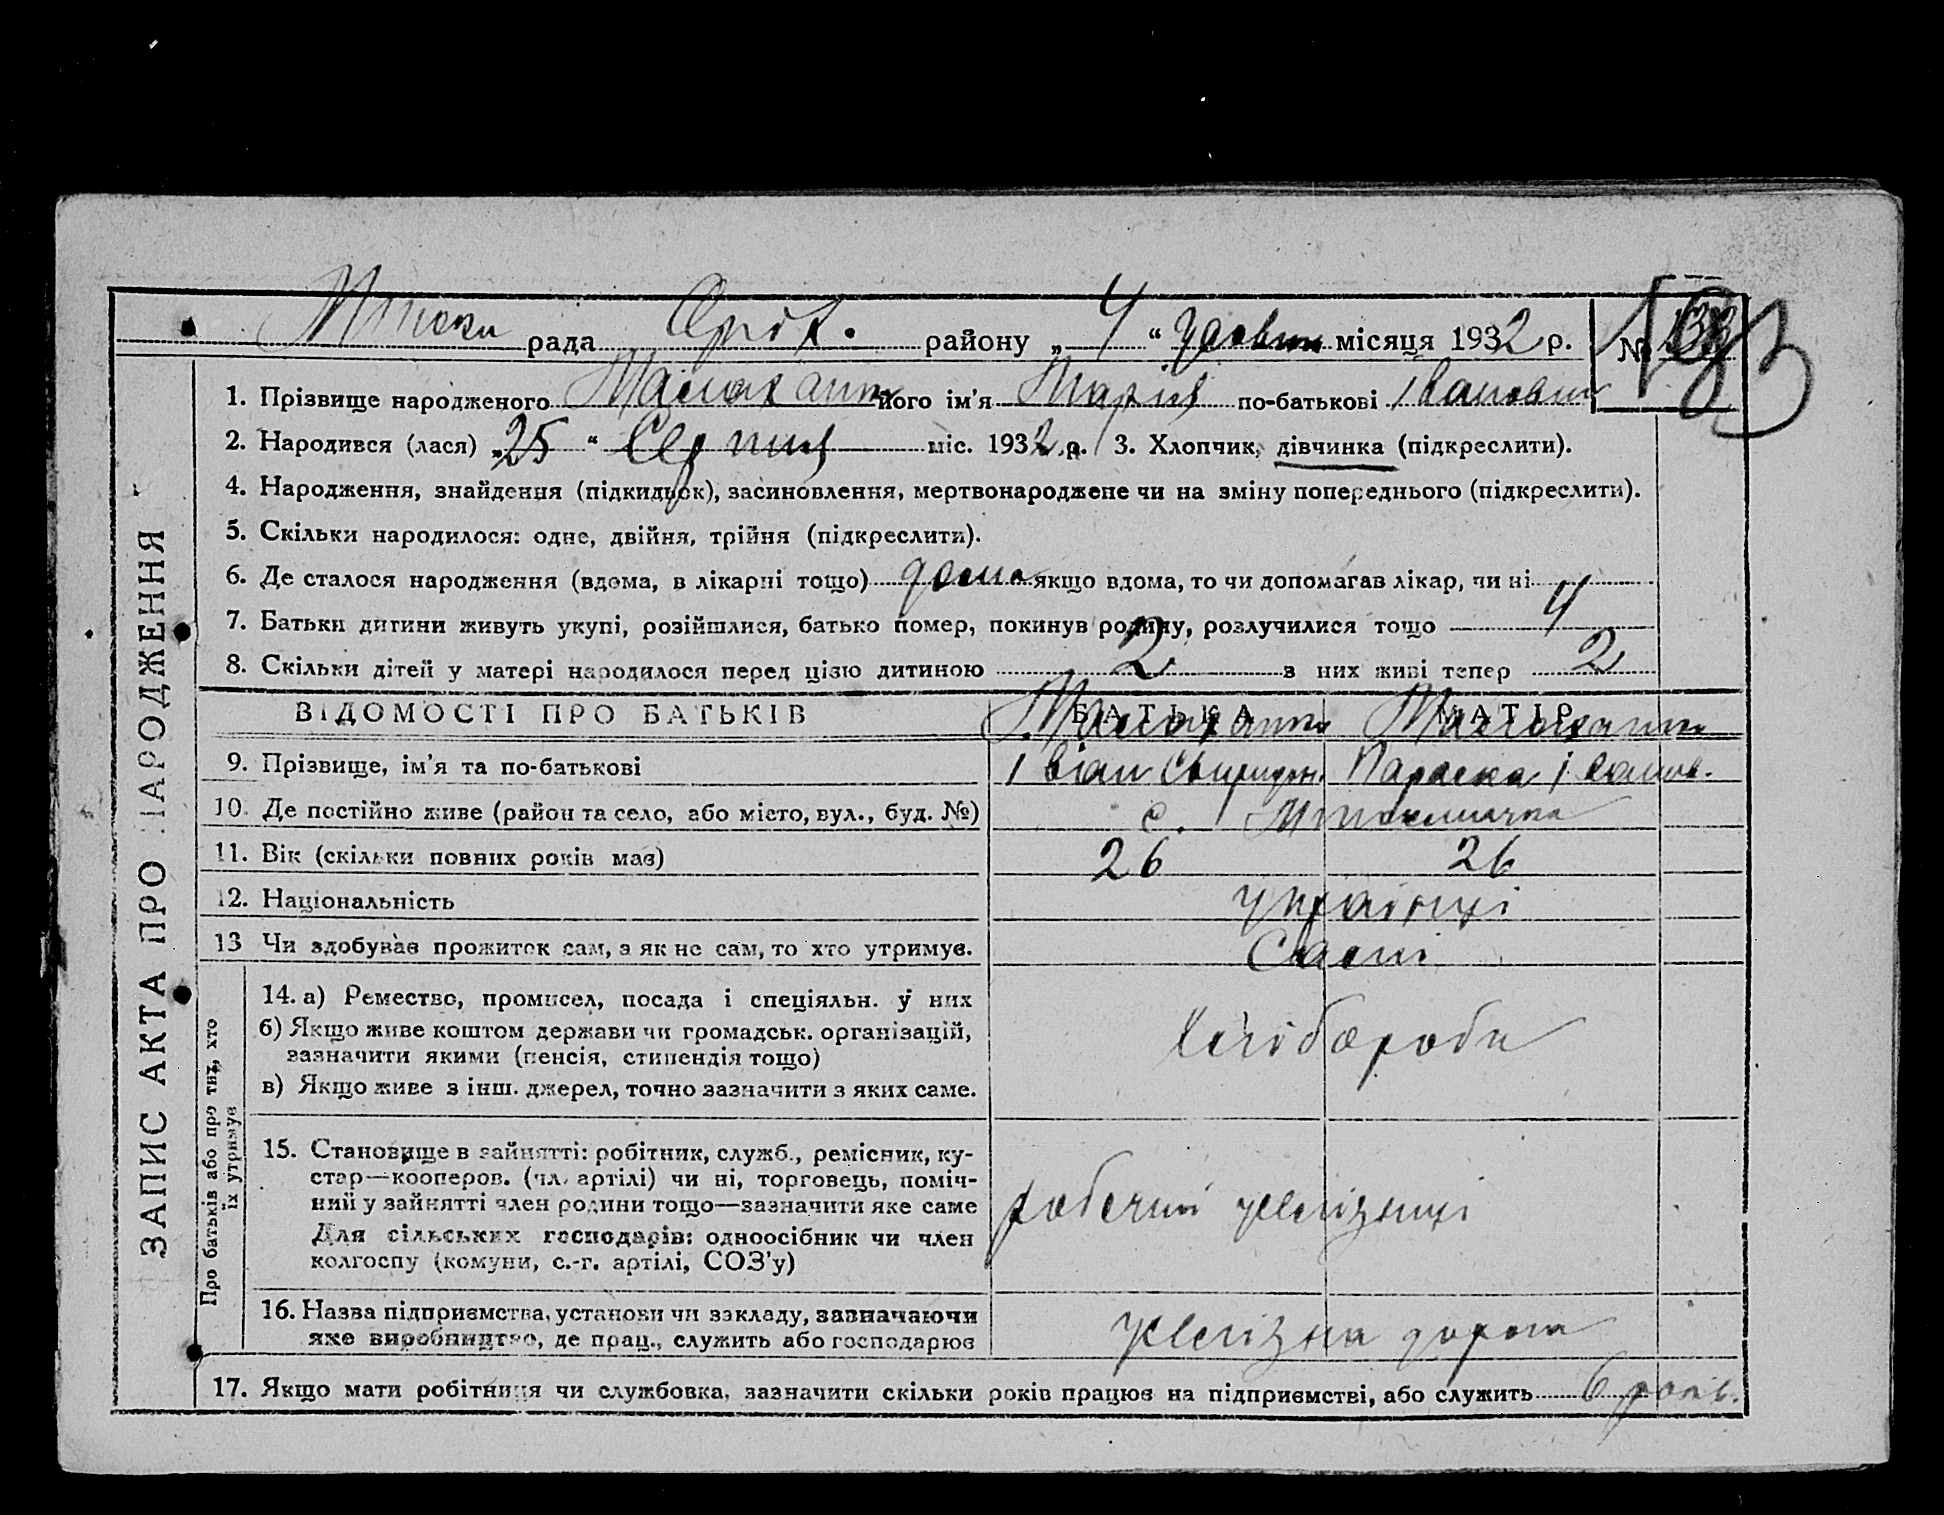 рада Оріх. району „ 4 “ Жовтня місяця 1932 р. №
1. Прізвище народженого його ім'я Марія по-батькові Івановна
2. Народився (лася) „25“ Серпня міс. 1932 р. 3. Хлопчик, дівчинка (підкреслити).
4. Народження, знайдення (підкидьок), засиновлення, мертвонароджене чи на зміну попереднього (підкреслити).
5. Скільки народилося: одне, двійня, трійня (підкреслити).
6. Де сталося народження (вдома, в лікарні тощо) дома якщо вдома, то чи допомагав лікар, чи ні
7. Батьки дитини живуть укупі, розійшлися, батько помер, покинув родину, розлучилися тощо У
8. Скільки дітей у матері народилося перед цією дитиною 2 з них живі тепер 2
ВІДОМОСТІ ПРО БАТЬКІВ БАТЬКА МАТІР
9. Прізвище, ім'я та по-батькові Іван Свиридон. Параска Іванов.
10. Де постійно живе (район та село, або місто, вул., буд. №) с.
11. Вік (скільки повних років має) 26 26
12. Національність Українці
13 Чи здобуває прожиток сам, а як не сам, то хто утримує. Самі
14. а) Ремество, промисел, посада і спеціяльн. у них
б) Якщо живе коштом держави чи громадськ. організацій,
зазначити якими (пенсія, стипендія тощо)
в) Якщо живе з інш. джерел, точно зазначити з яких саме.
Хлібороби
15. Становище в зайнятті: робітник, служб., ремісник, ку-
стар—кооперов. (чл. артілі) чи ні, торговець, поміч-
ний у зайнятті член родини тощо—зазначити яке саме
Для сільських господарів: одноосібник чи член
колгоспу (комуни, с.-г. артілі, СОЗ'у)
робочий желізниці
16. Назва підприємства, установи чи закладу, зазначаючи
яке виробництво, де прац., служить або господарює
желізна дорога
17. Якщо мати робітниця чи службовка, зазначити скільки років працює на підприємстві, або служить 6 років.
ЗАПИС АКТА ПРО НАРОДЖЕННЯ
Про батьків або про тих, хто
їх утримує